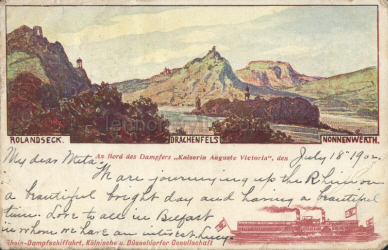 ROLANDSECK. DRACHENFELS NONNENWERTH.
An Bord des Dampfers „Kaiserin Auguste Victoria", den July 18th 190
My dear Meta:
We are journeying up the Rhine on
a beautiful bright day and having a beautiful
time. Love to all in Belfast
in whom we have an interest.
Rhein-Dampfschiffahrt, Kölnische u. Düsseldorfer Gesellschaft